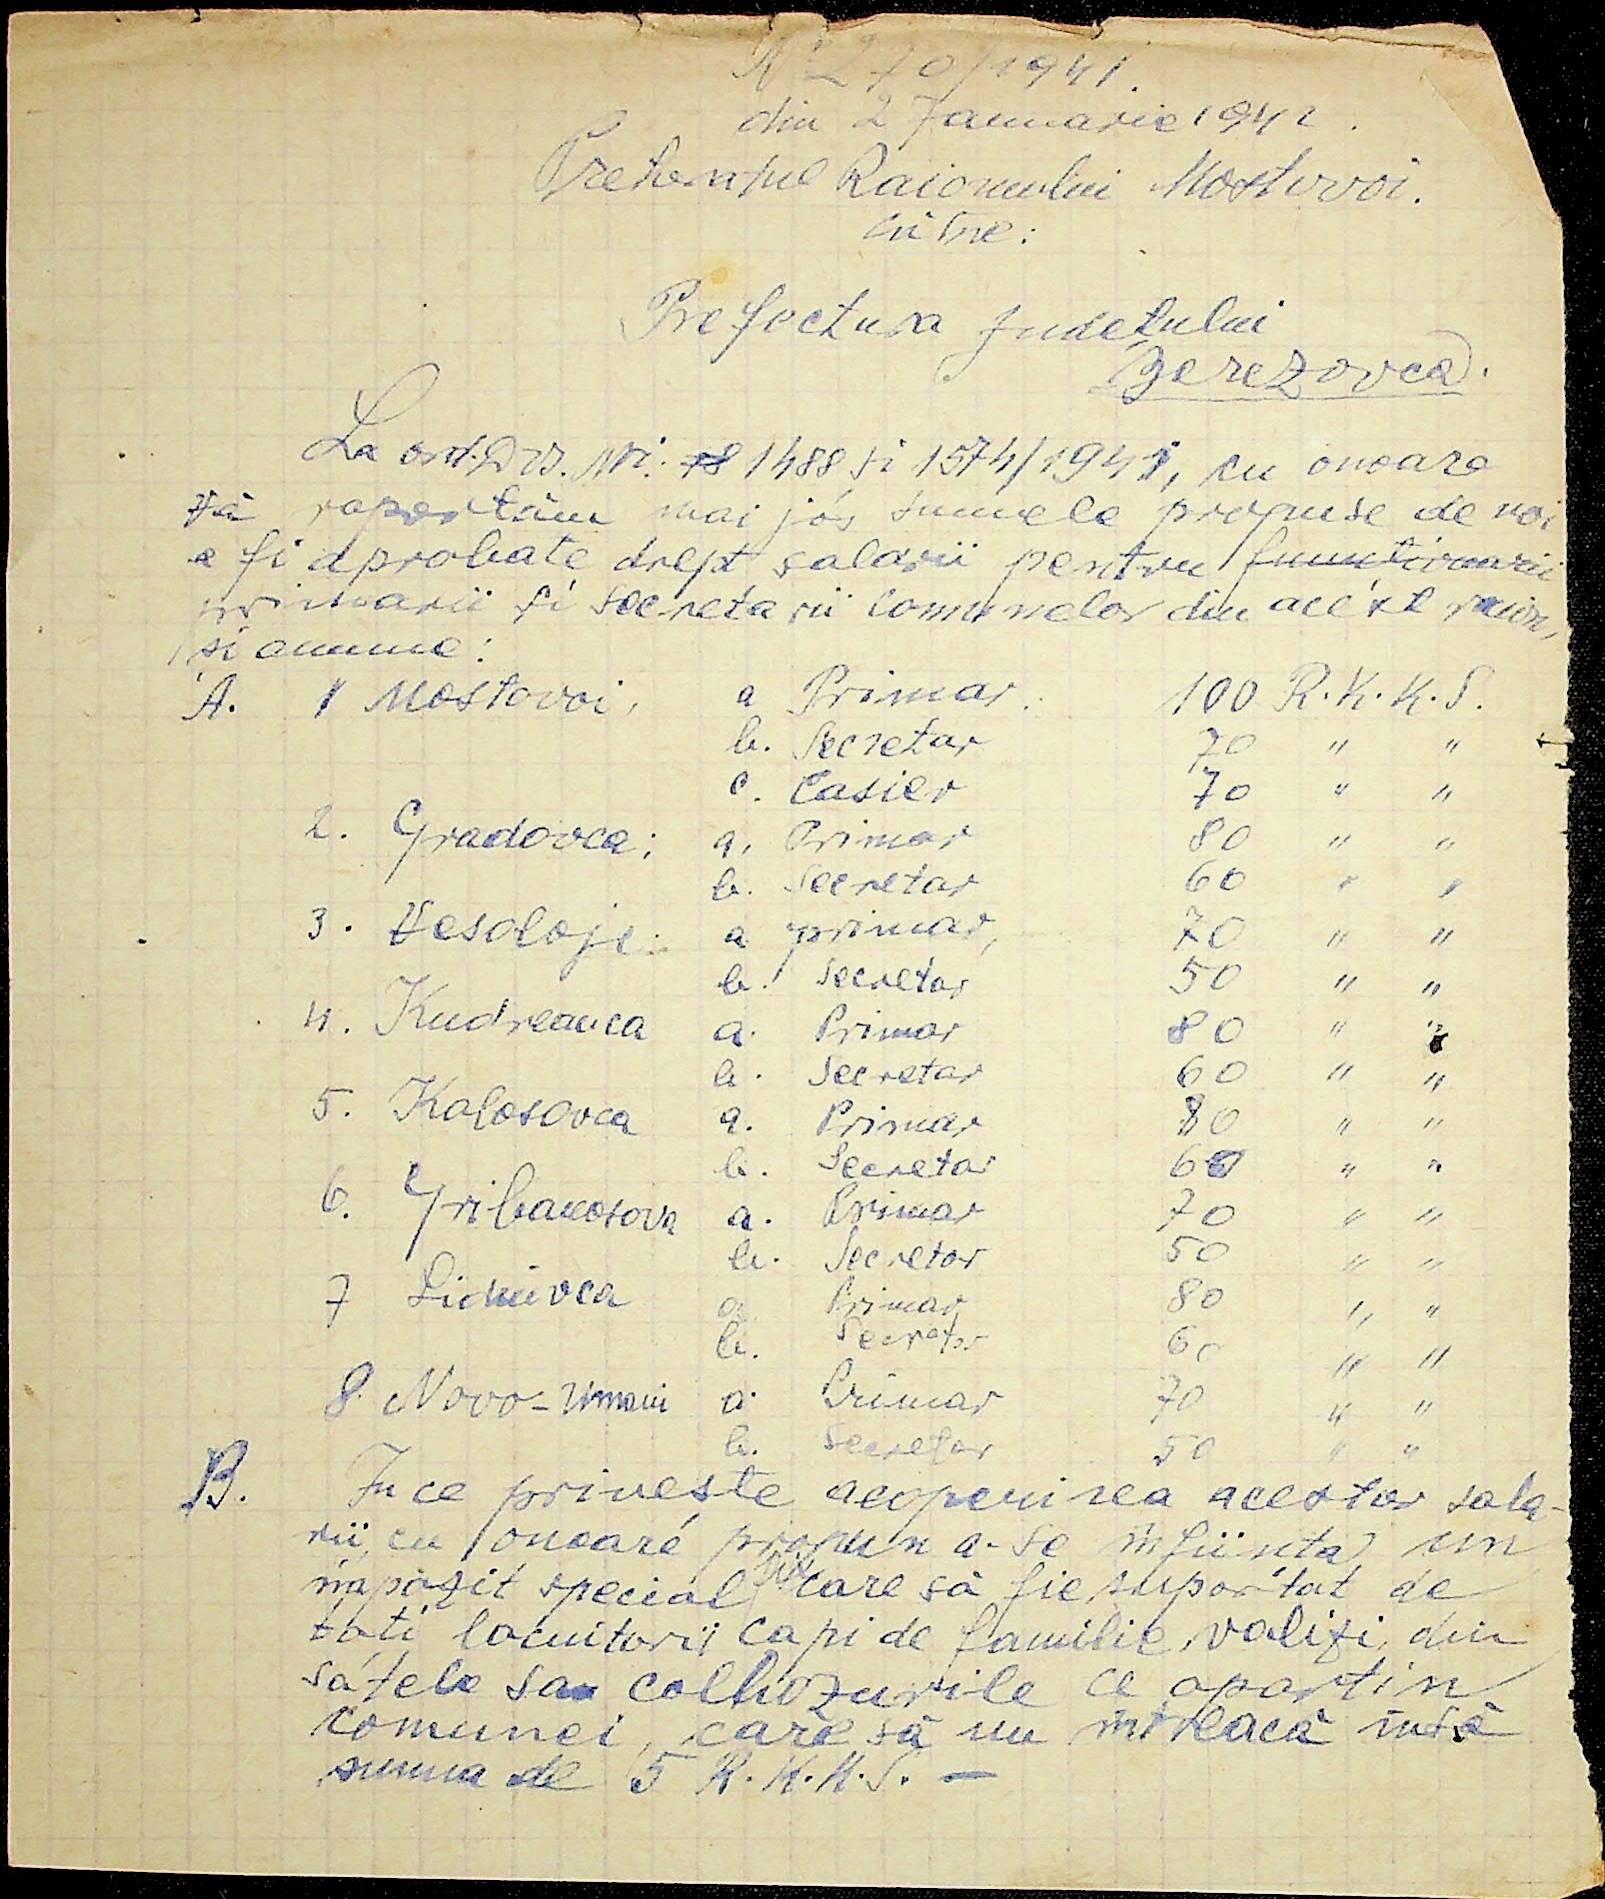 Nº 270/1941.
din 2 Januarie 1942.
Pretoratul Raionului Mostovoi.
către:
Prefectura Judetului
Berezovca.
La ord. Dvs. Nr. 1488 si 1574/1941, cu onoare
vă raportăm mai jos sumele propuse de noi
a fi aprobate drept salarii pentru functionarii
primarii si secretarii comunelor din acest raion,
si anume:
A. 1 Mostovoi, a Primar. 100 R.K.K.S.
b. Secretar 70 " "
c. Casier 70 " "
2. Gradovca; a. Primar 80 " "
b. Secretar 60 " "
3. Vesoloje: a primar, 70 " "
b. Secretar 50 " "
4. Kudreavca a. Primar 80 " "
b. Secretar 60 " "
5. Kolosovca a. Primar 80 " "
b. Secretar 60 " "
6. a. Primar 70 " "
b. Secretar 50 " "
7 a. Primar 80 " "
b. Secretar 60 " "
8. Novo-Umani a. Primar 70 " "
b. Secretar 50 " "
B. In ce priveste acoperirea acestor sala-
rii, cu onoare propun a-se înfiinta un
impozit special fix care să fie suportat de
toti locuitorii capi de familie, valizi, din
satele sau colhozurile ce apartin
comunei, care să nu întreacă însă
suma de 5 R.K.K.S. —